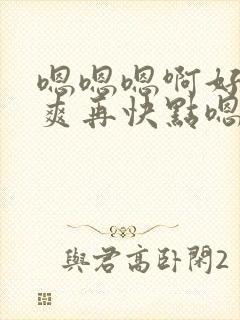 嗯嗯嗯啊好
爽再快點嗯
與君高卧閑2